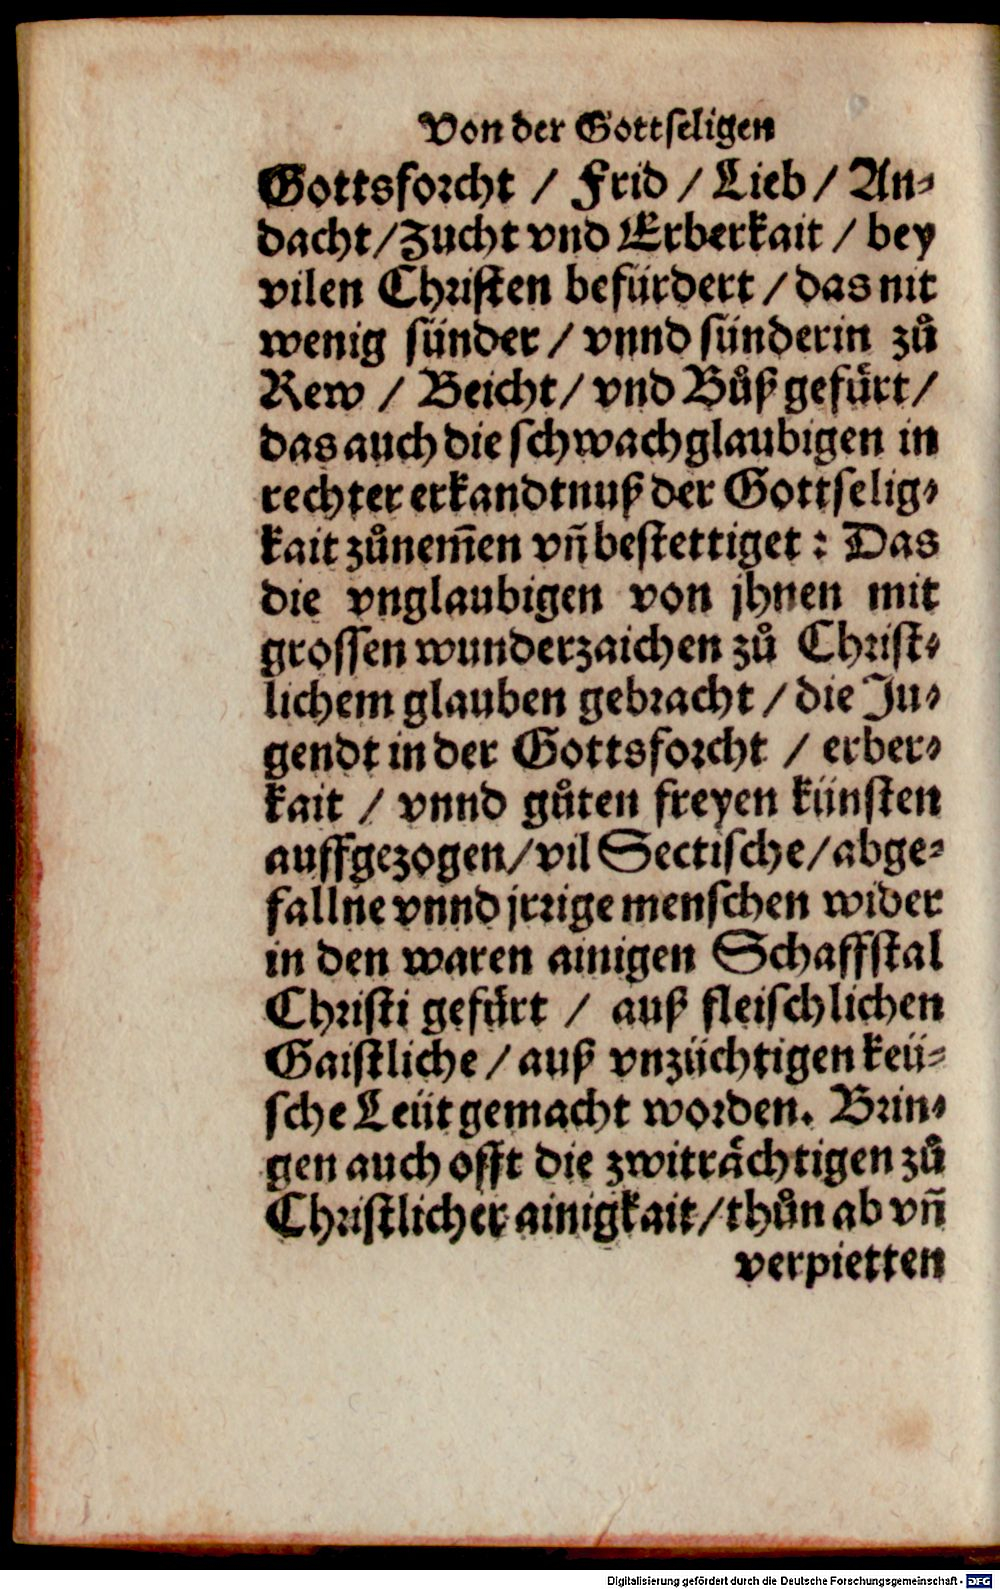 Von der Gottseligen
Gottsforcht / Frid / Lieb / An⸗
dacht / Zucht vnd Erberkait / bey
vilen Christen befürdert / das nit
wenig sünder / vnnd sünderin zů
Rew / Beicht / vnd Bůß gefürt /
das auch die schwachglaubigen in
rechter erkandtnuß der Gottselig⸗
kait zůnem̃en vñ bestettiget : Das
die vnglaubigen von jhnen mit
grossen wunderzaichen zů Christ⸗
lichem glauben gebracht / die Ju⸗
gendt in der Gottsforcht / erber⸗
kait / vnnd gůten freyen künsten
auffgezogen / vil Sectische / abge⸗
fallne vnnd jrrige menschen wider
in den waren ainigen Schaffstal
Christi gefürt / auß fleischlichen
Gaistliche / auß vnzüchtigen keü⸗
sche Leüt gemacht worden. Brin⸗
gen auch offt die zwiträchtigen zů
Christlicher ainigkait / thůn ab vñ
verpietten
Digitalisierung gefördert durch die Deutsche Forschungsgemeinschaft - DFG